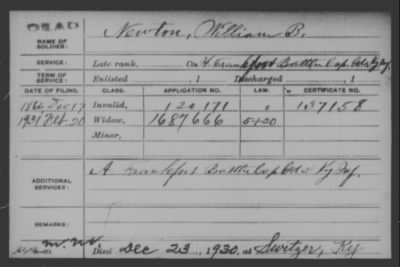 DEAD
NAME OF SOLDIER: Newton, William B.
SERVICE: Late rank, Co. Frankfort Battln Cap. Gds Ky Inf.
TERM OF SERVICE: Enlisted , 1 Discharged , 1
DATE OF FILING. CLASS. APPLICATION NO. LAW. CERTIFICATE NO.
1866 Dec 17 Invalid, 120,171 137158
1931 Feb 20 Widow, 1687666 5-1-20
Minor,
ADDITIONAL SERVICES: A Frankfort Battln Cap Gds Ky Inf.
REMARKS:
Died Dec 23, 1930, at Switzer, Ky.